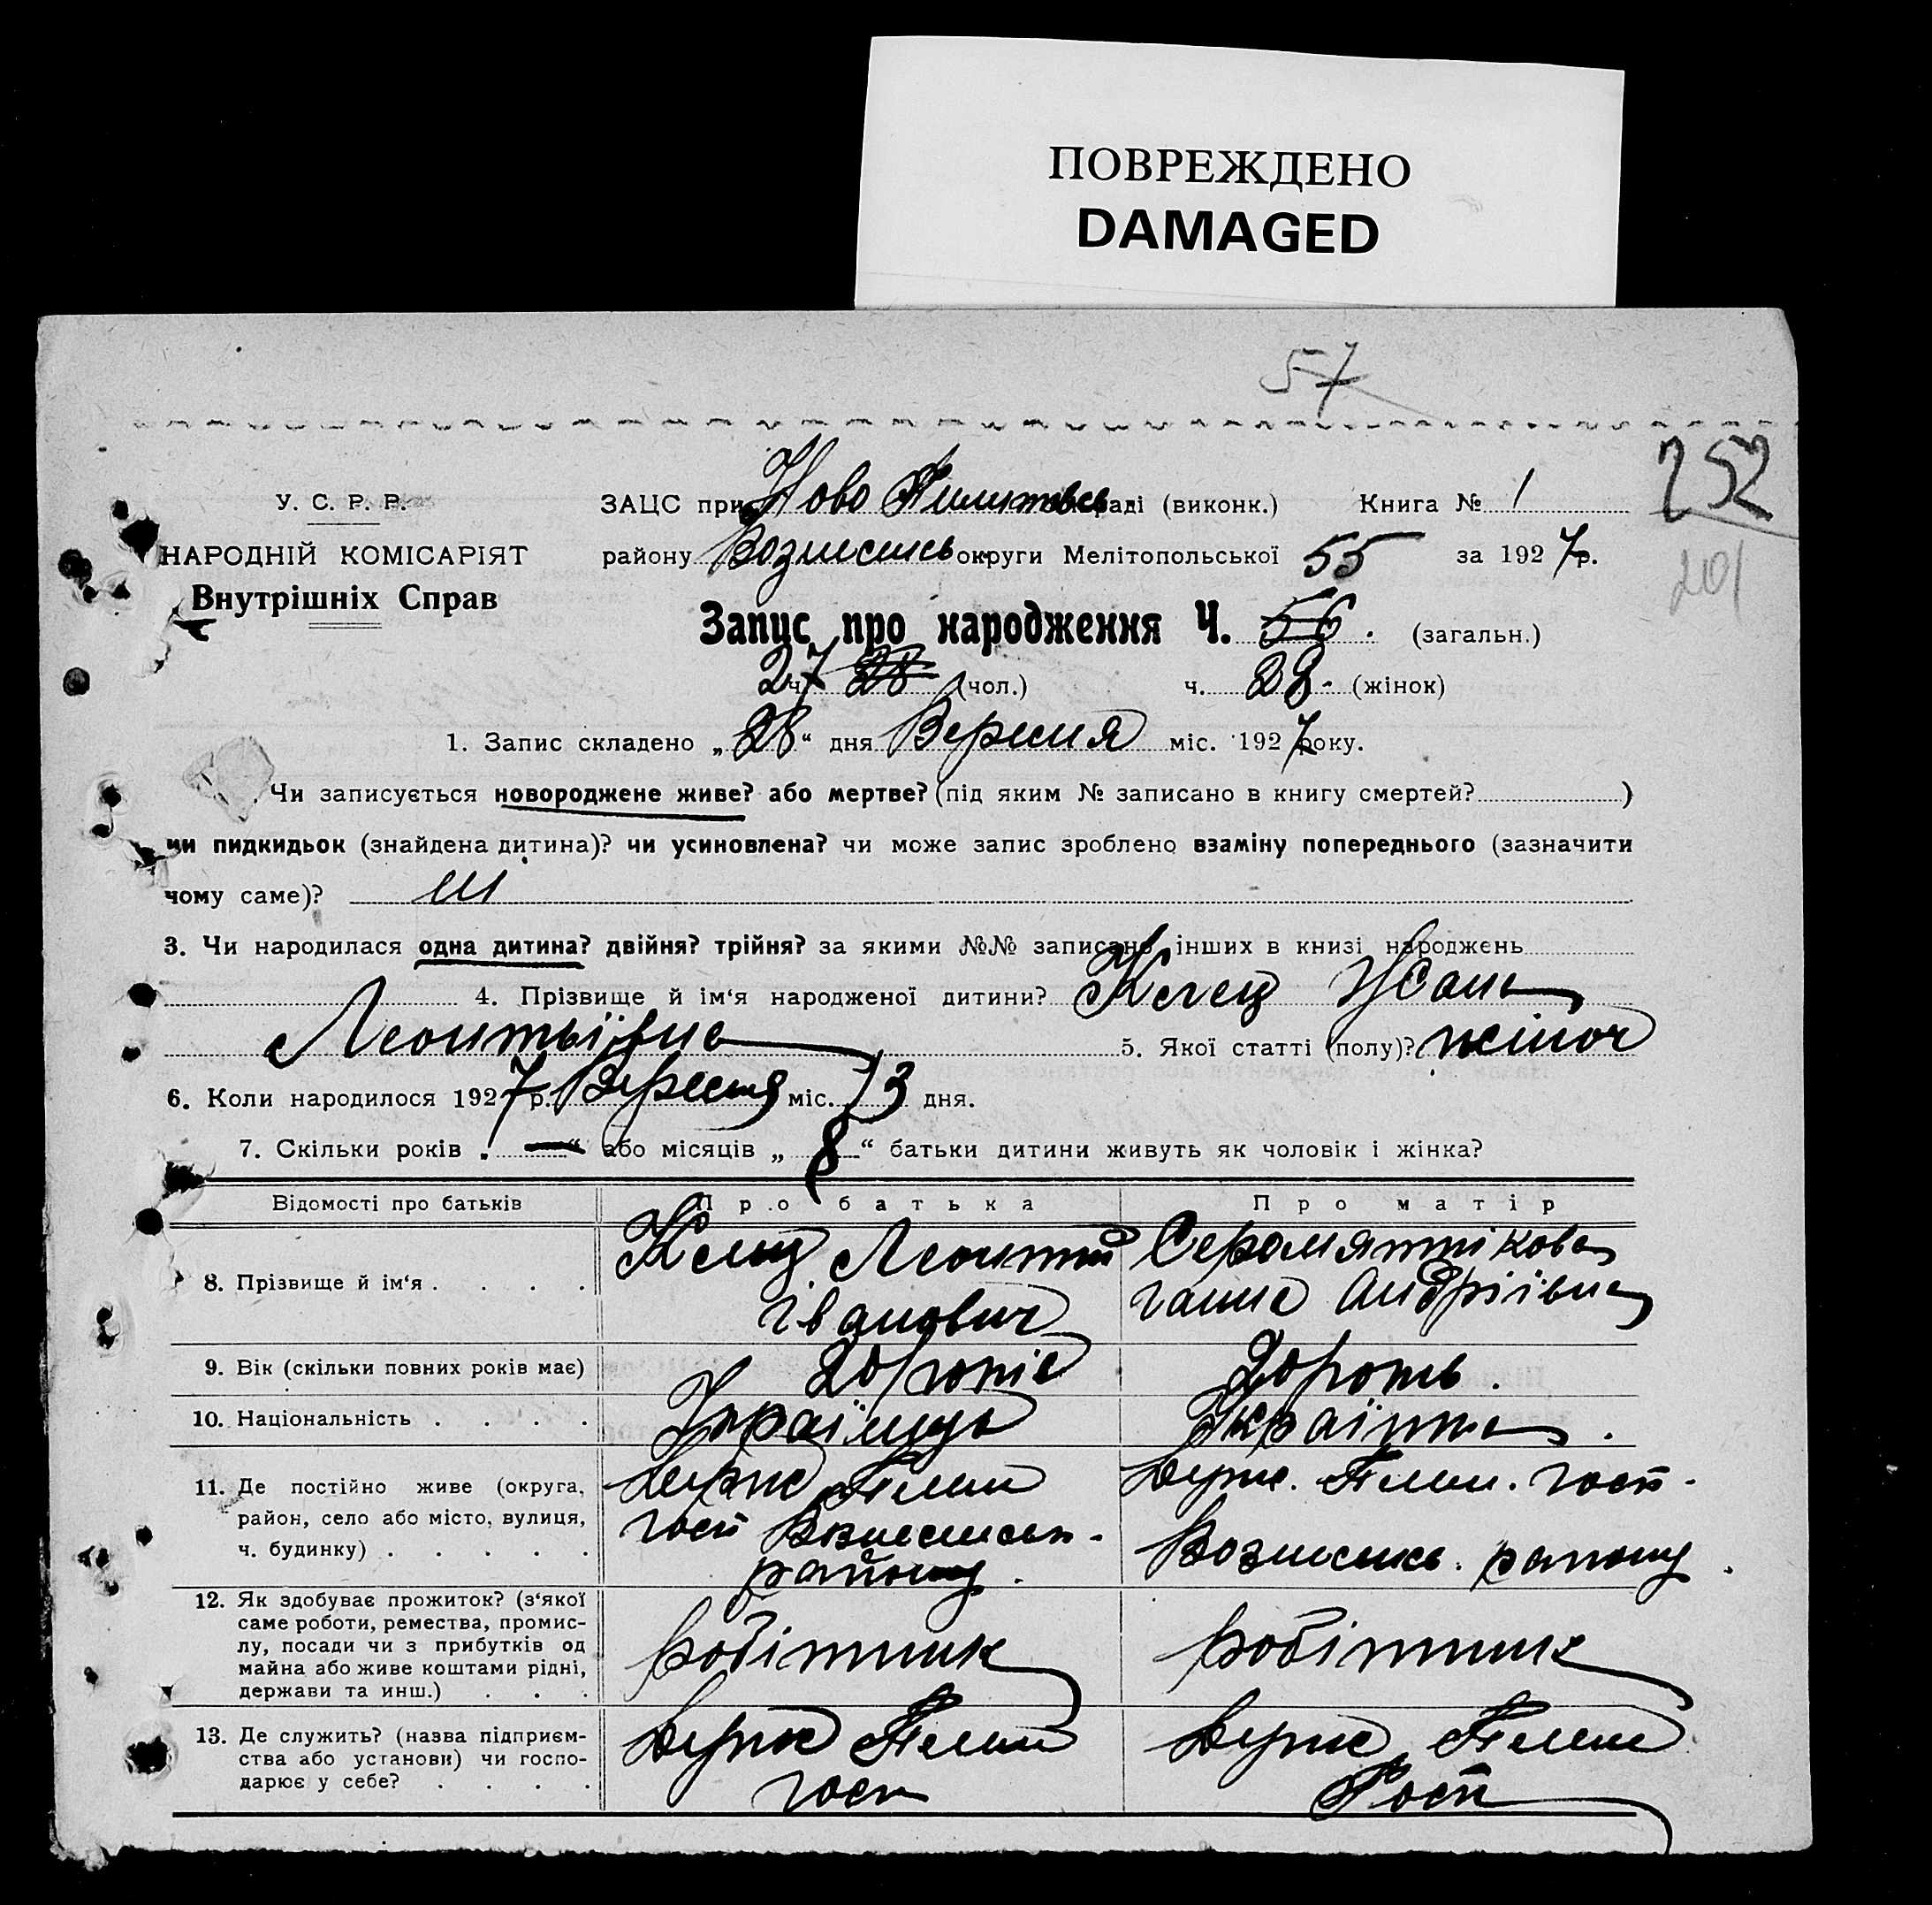 ПОВРЕЖДЕНО
DAMAGED
57
252
201
У. С. Р. Р.
НАРОДНІЙ КОМІСАРІЯТ
Внутрішніх Справ
ЗАЦС при Ново раді (виконк.) Книга № 1
району округи Мелітопольської 55 за 1927 р.
Запис про народження Ч. 56. (загальн.)
27 ч. 28 (чол.) ч. 28. (жінок)
1. Запис складено „28“ дня Вересня міс. 1927 року.
Чи записується новороджене живе? або мертве? (під яким № записано в книгу смертей? )
чи пидкидьок (знайдена дитина)? чи усиновлена? чи може запис зроблено взаміну попереднього (зазначити
чому саме)? ні
3. Чи народилася одна дитина? двійня? трійня? за якими №№ записано інших в книзі народжень
4. Прізвище й ім‘я народженої дитини?
Леонтьївна 5. Якої статті (полу)? жіноч
6. Коли народилося 1927 р. Вересня міс. 13 дня.
7. Скільки років „ — “ або місяців „ 8 “ батьки дитини живуть як чоловік і жінка?
Відомості про батьків Про батька Про матір
8. Прізвище й ім‘я . . . .
Леонтій
Іванович
Серомятнікова
Ганна Андріївна
9. Вік (скільки повних років має) 20 років 20 років.
10. Національність . . . . Українець Українка.
11. Де постійно живе (округа,
район, село або місто, вулиця,
ч. будинку) . . . . .
Держ Плем
госп Вознесенськ.
району.
Держ. Плем. госп.
Вознесенськ. району.
12. Як здобуває прожиток? (з‘якої
саме роботи, ремества, промис-
лу, посади чи з прибутків од
майна або живе коштами рідні,
держави та инш.) . . .
робітник робітник
13. Де служить? (назва підприєм-
ства або установи) чи госпо-
дарює у себе? . . . .
Держ Плем
госп
Держ Плем
Госп